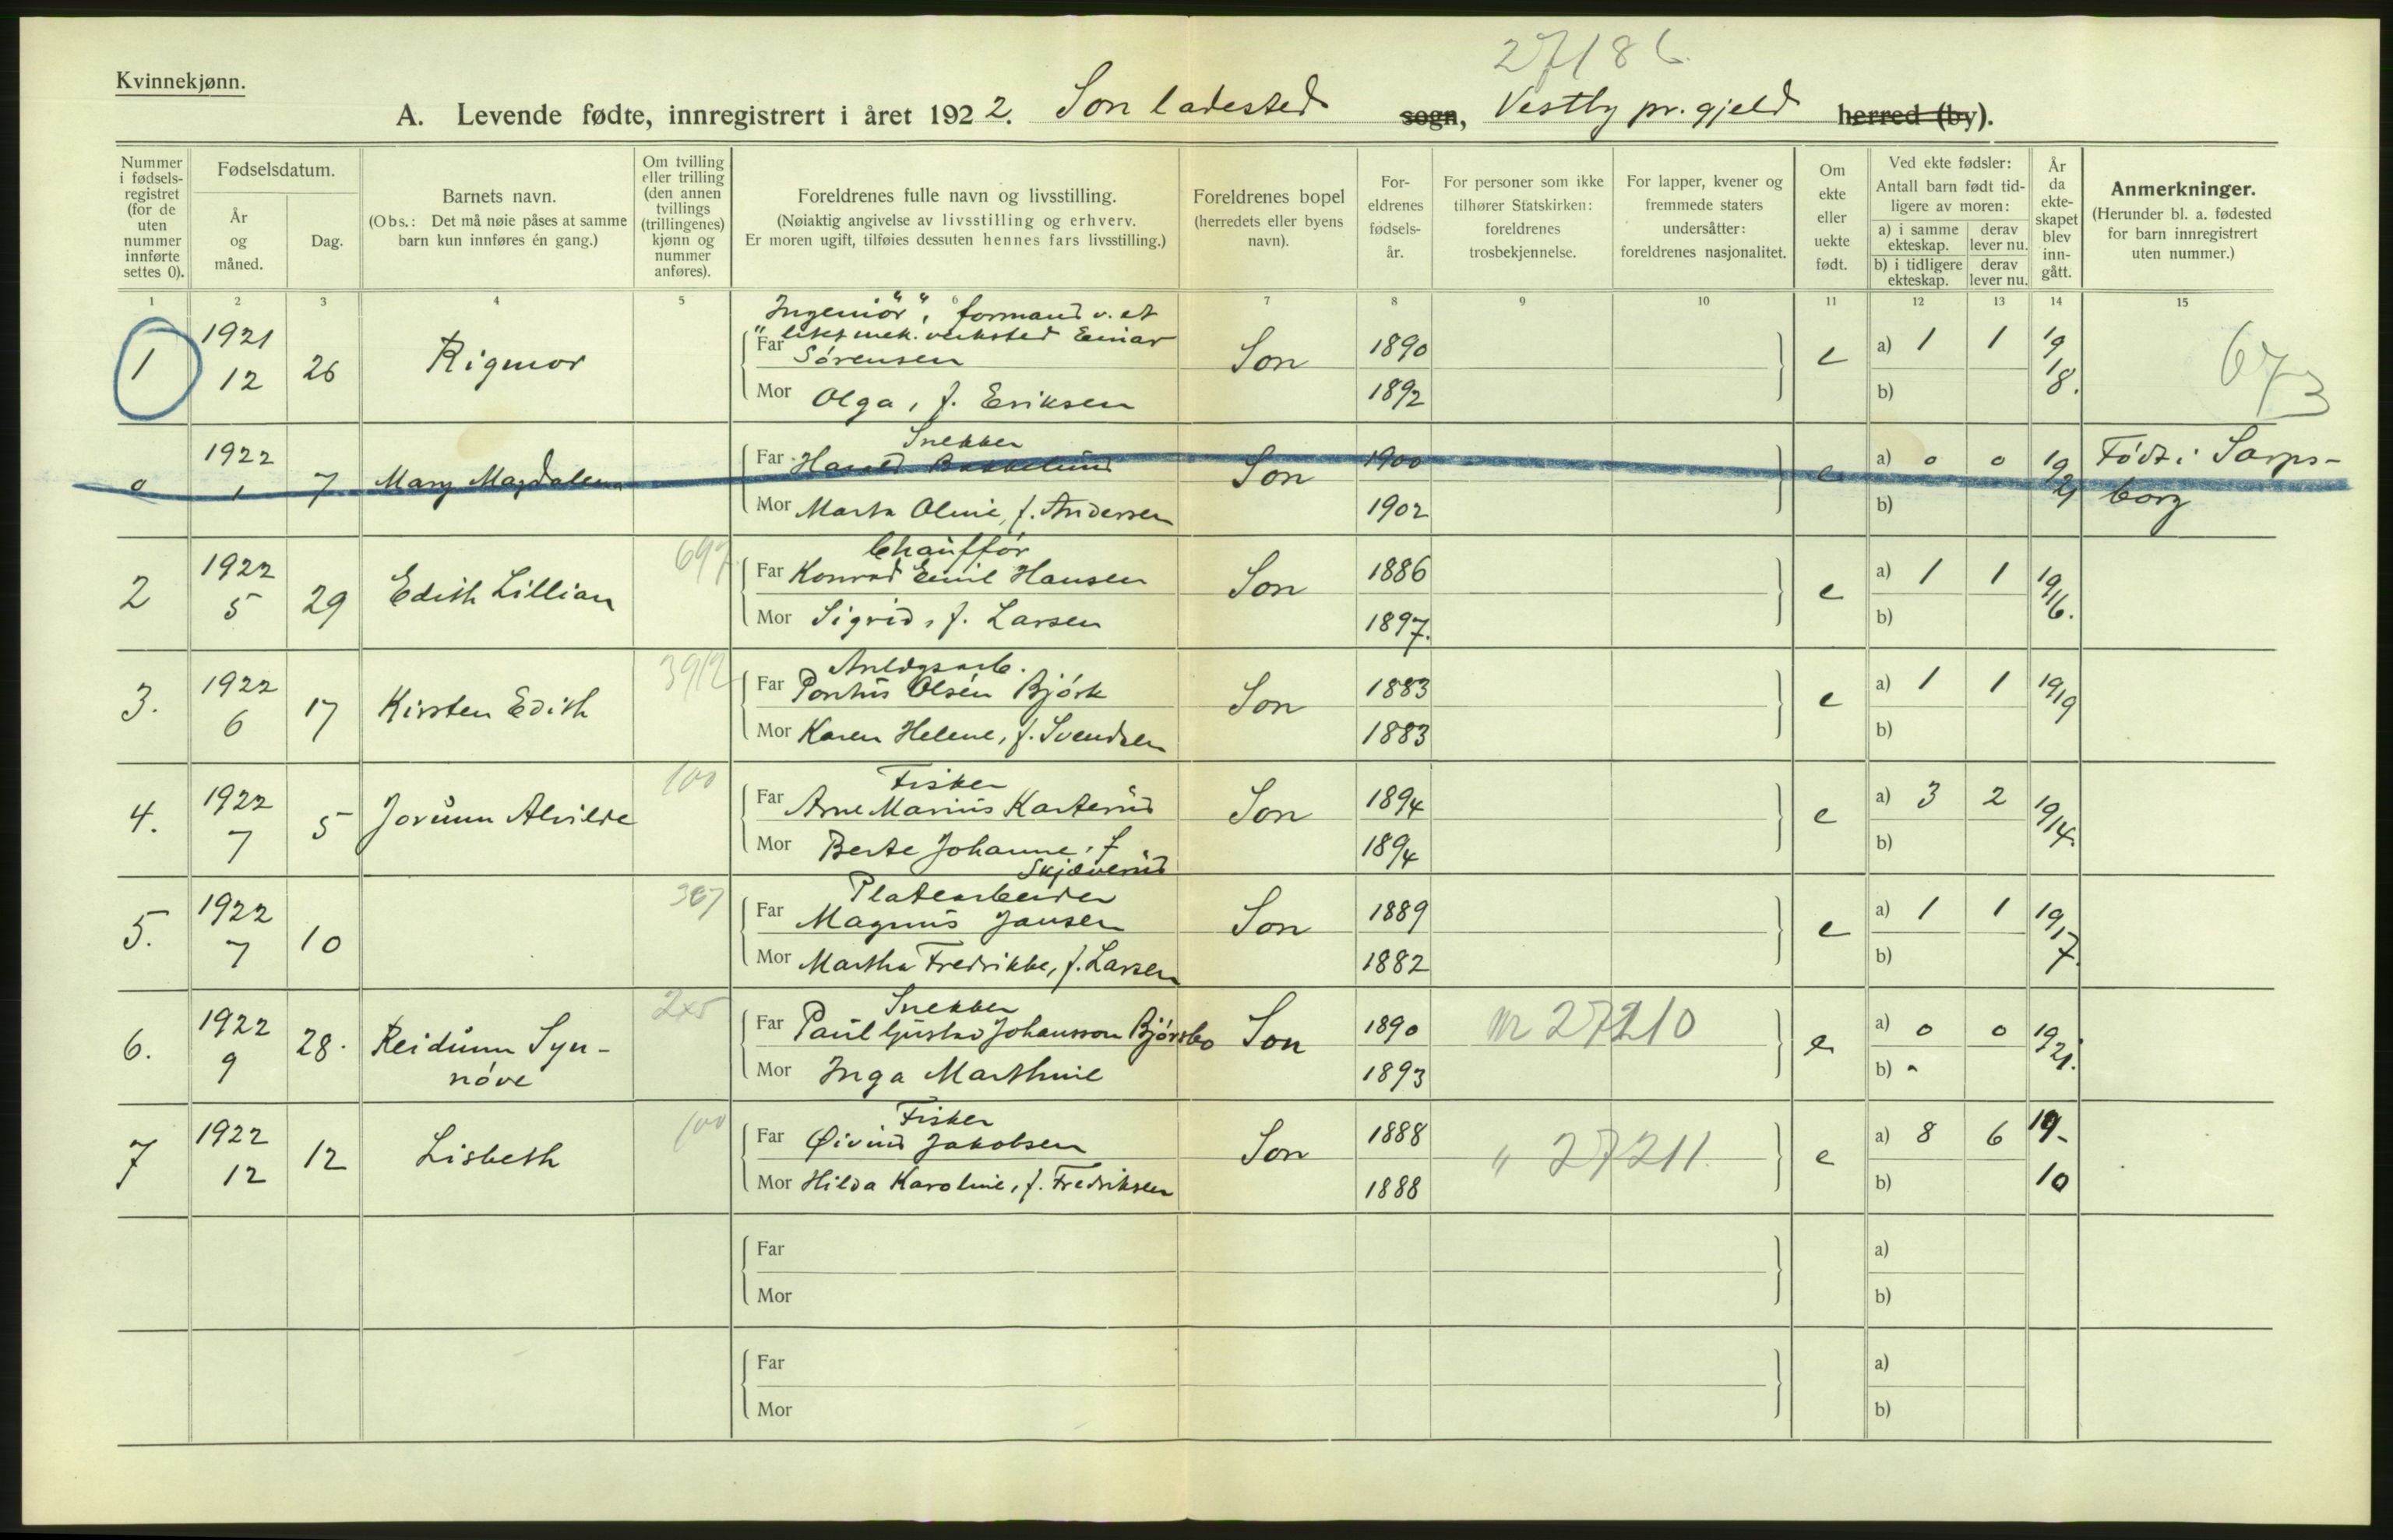 27186
Kvinnekjønn.
A. Levende fødte, innregistrert i året 1922. Son ladested sogn, Vestby pr.gjeld herred (by).
Nummer i fødsels-registret (for de uten nummer innførte settes 0).
Fødselsdatum.
År og måned.
Dag.
Barnets navn.
(Obs.: Det må nøie påses at samme barn kun innføres én gang.)
Om tvilling eller trilling (den annen tvillings (trillingenes) kjønn og nummer anføres).
Foreldrenes fulle navn og livsstilling.
(Nøiaktig angivelse av livsstilling og erhverv.
Er moren ugift, tilføies dessuten hennes fars livsstilling.)
Foreldrenes bopel (herredets eller byens navn).
For-eldrenes fødsels-år.
For personer som ikke tilhører Statskirken: foreldrenes trosbekjennelse.
For lapper, kvener og fremmede staters undersåtter: foreldrenes nasjonalitet.
Om ekte eller uekte født.
Ved ekte fødsler:
Antall barn født tid-ligere av moren:
a) i samme ekteskap. derav lever nu.
b) i tidligere ekteskap. derav lever nu.
År da ekte-skapet blev inn-gått.
Anmerkninger.
(Herunder bl. a. fødested for barn innregistrert uten nummer.)
1 2 3 4 5 6 7 8 9 10 11 12 13 14 15
Ingeniör, formand v. et
1 1921 12 26 Rigmor Far mek. verksted Einar Sörensen Son 1890 e a) 1 1 19 18. 673
Mor Olga, f. Eriksen 1892 b)
Snekker
0 1922 1 7 Mary Magdalena Far Harald Bakkelund Son 1900 e a) 0 0 19 21 Födt i Sarps-
Mor Marta Oline, f. Andersen 1902 b) borg
697 Chaufför
2 1922 5 29 Edith Lillian Far Konrad Emil Hansen Son 1886 e a) 1 1 1916.
Mor Sigrid, f. Larsen 1897. b)
3912 Anlögsarb.
3. 1922 6 17 Kirsten Edith Far Pontus Olsén Björk Son 1883 e a) 1 1 1919
Mor Karen Helene, f. Svendsen 1883 b)
100 Fisker
4. 1922 7 5 Jorunn Alvilde Far Arne Marius Karterud Son 1894 e a) 3 2 1914.
Mor Berte Johanne, f. Skjæverud 1894 b)
307 Platearbeider
5. 1922 7 10 Far Magnus Jansen Son 1889 e a) 1 1 1917.
Mor Martha Fredrikke, f. Larsen 1882 b)
Snekker
6. 1922 9 28. Reidunn Syn-növe Far Paul Gustav Johansson Björsbo Son 1890 nr 27210 e a) 0 0 1921.
Mor Inga Marthine 1893 b)
100 Fisker
7 1922 12 12 Lisbeth Far Øivind Jakobsen Son 1888 " 27211. e a) 8 6 19-
Mor Hilda Karoline, f. Fredriksen 1888 b) 10
Far a)
Mor b)
Far a)
Mor b)